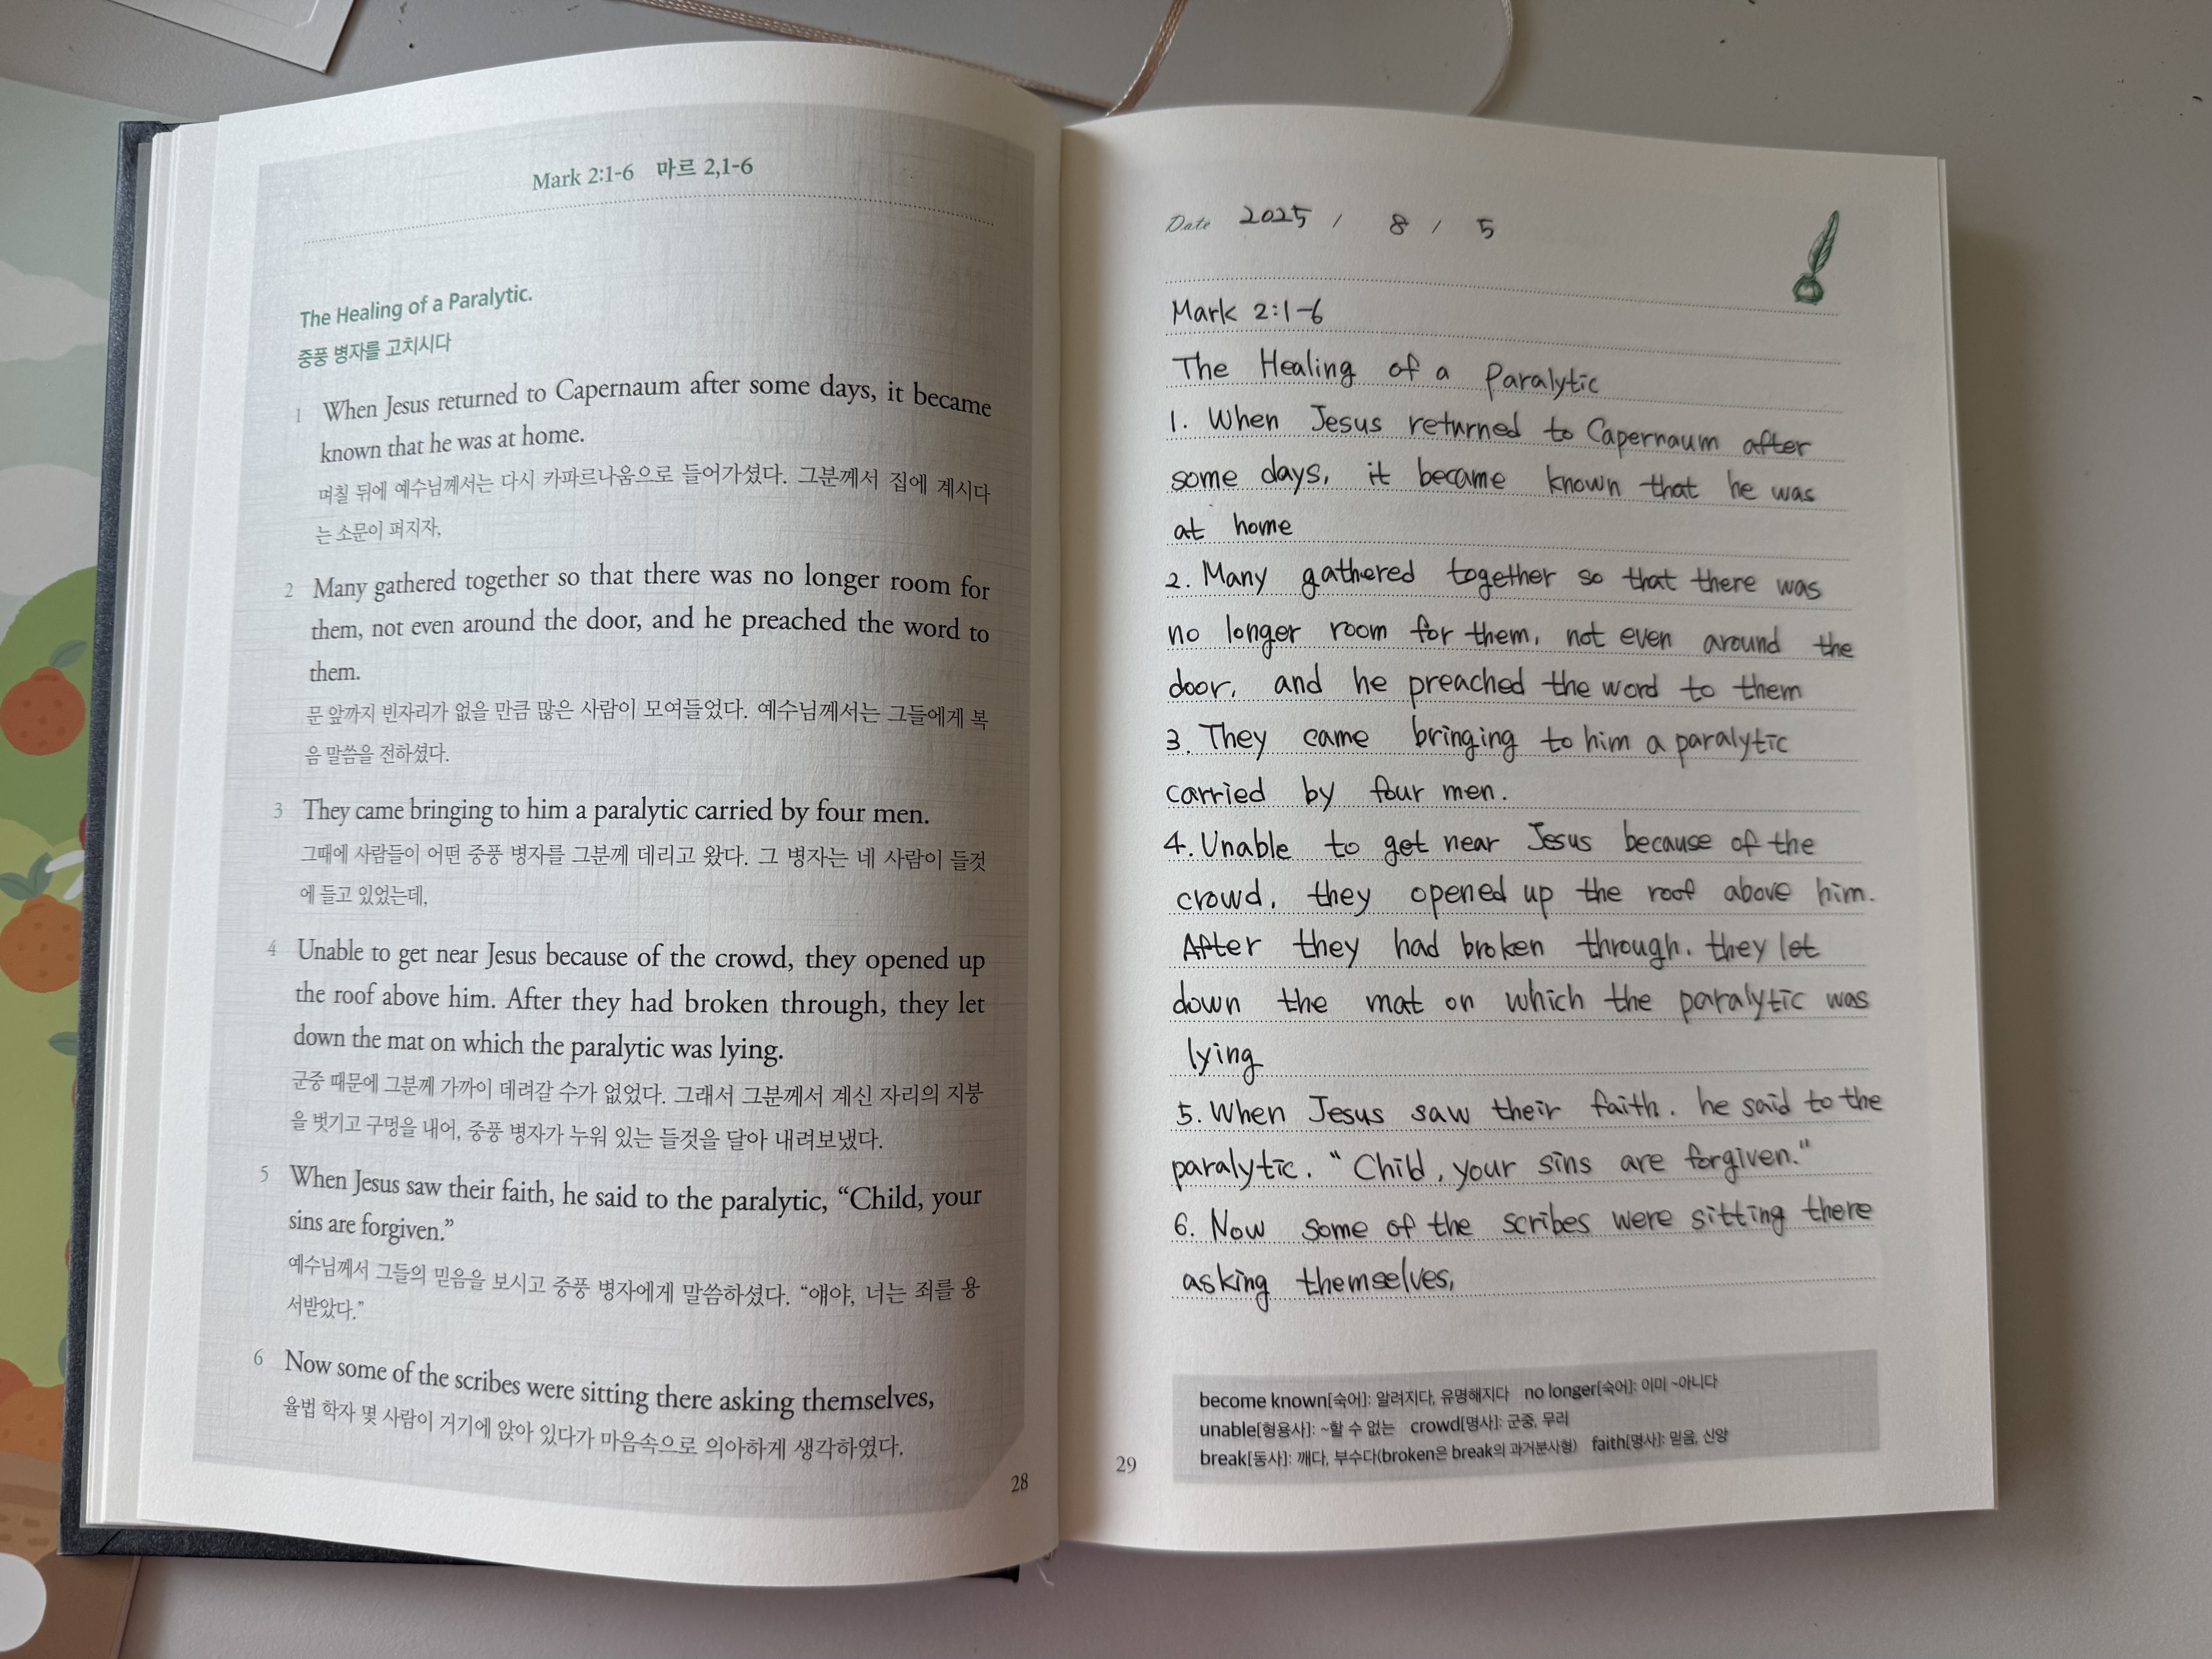 Mark 2:1-6 마르 2,1-6
The Healing of a Paralytic.
중풍 병자를 고치시다
1 When Jesus returned to Capernaum after some days, it became
known that he was at home.
며칠 뒤에 예수님께서는 다시 카파르나움으로 들어가셨다. 그분께서 집에 계시다
는 소문이 퍼지자,
2 Many gathered together so that there was no longer room for
them, not even around the door, and he preached the word to
them.
문 앞까지 빈자리가 없을 만큼 많은 사람이 모여들었다. 예수님께서는 그들에게 복
음 말씀을 전하셨다.
3 They came bringing to him a paralytic carried by four men.
그때에 사람들이 어떤 중풍 병자를 그분께 데리고 왔다. 그 병자는 네 사람이 들것
에 들고 있었는데,
4 Unable to get near Jesus because of the crowd, they opened up
the roof above him. After they had broken through, they let
down the mat on which the paralytic was lying.
군중 때문에 그분께 가까이 데려갈 수가 없었다. 그래서 그분께서 계신 자리의 지붕
을 벗기고 구멍을 내어, 중풍 병자가 누워 있는 들것을 달아 내려보냈다.
5 When Jesus saw their faith, he said to the paralytic, “Child, your
sins are forgiven.”
예수님께서 그들의 믿음을 보시고 중풍 병자에게 말씀하셨다. “얘야, 너는 죄를 용
서받았다.”
6 Now some of the scribes were sitting there asking themselves,
율법 학자 몇 사람이 거기에 앉아 있다가 마음속으로 의아하게 생각하였다.
28
Date 2025 / 8 / 5
Mark 2:1-6
The Healing of a Paralytic
1. When Jesus returned to Capernaum after
some days, it became known that he was
at home
2. Many gathered together so that there was
no longer room for them, not even around the
door, and he preached the word to them
3. They came bringing to him a paralytic
carried by four men.
4. Unable to get near Jesus because of the
crowd, they opened up the roof above him.
After they had broken through, they let
down the mat on which the paralytic was
lying
5. When Jesus saw their faith, he said to the
paralytic. "Child, your sins are forgiven."
6. Now some of the scribes were sitting there
asking themselves,
become known[숙어]: 알려지다, 유명해지다 no longer[숙어]: 이미 ~아니다
unable[형용사]: ~할 수 없는 crowd[명사]: 군중, 무리
break[동사]: 깨다, 부수다(broken은 break의 과거분사형) faith[명사]: 믿음, 신앙
29